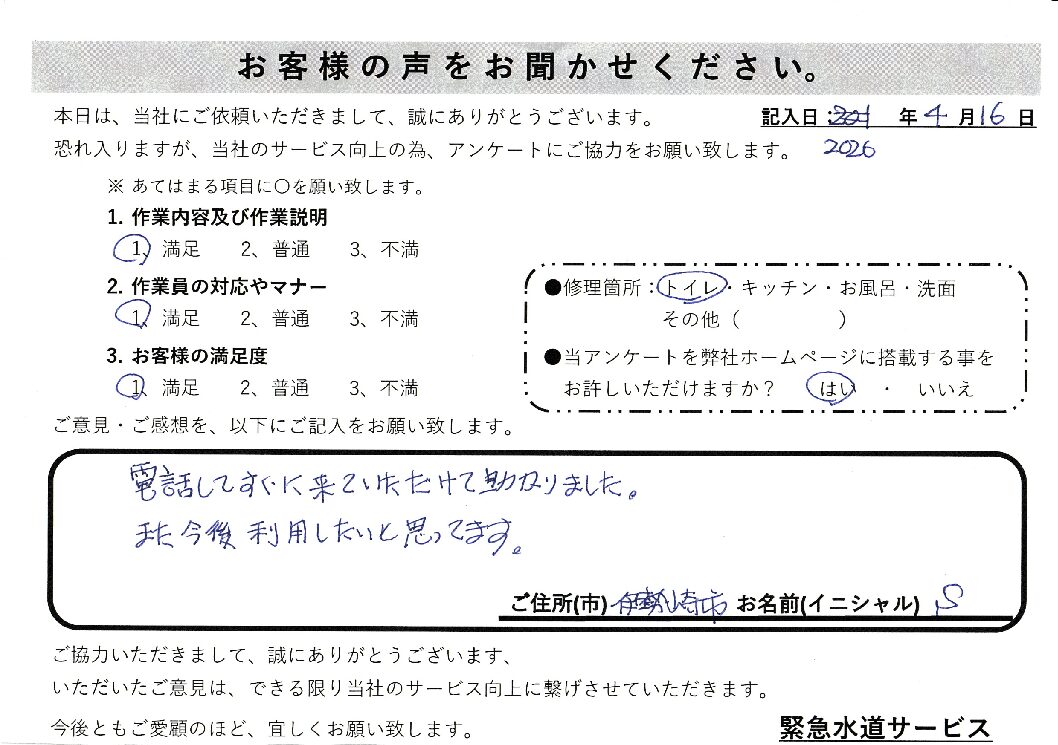 お客様の声をお聞かせください。
本日は、当社にご依頼いただきまして、誠にありがとうございます。
記入日: 年 4 月 16 日
2026
恐れ入りますが、当社のサービス向上の為、アンケートにご協力をお願い致します。
※ あてはまる項目に〇を願い致します。
1. 作業内容及び作業説明
1、満足 2、普通 3、不満
2. 作業員の対応やマナー
1、満足 2、普通 3、不満
3. お客様の満足度
1、満足 2、普通 3、不満
●修理箇所：トイレ・キッチン・お風呂・洗面
その他（ ）
●当アンケートを弊社ホームページに搭載する事を
お許しいただけますか？ はい ・ いいえ
ご意見・ご感想を、以下にご記入をお願い致します。
電話してすぐに来ていただけて助かりました。
また今後利用したいと思ってます。
ご住所(市) 伊勢崎市 お名前(イニシャル) S
ご協力いただきまして、誠にありがとうございます、
いただいたご意見は、できる限り当社のサービス向上に繋げさせていただきます。
今後ともご愛顧のほど、宜しくお願い致します。
緊急水道サービス